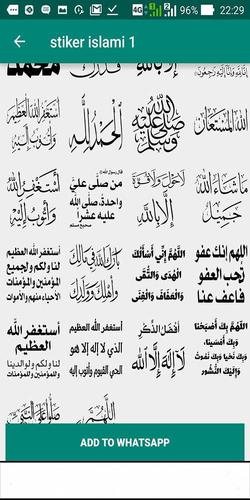 4G 96% 22:29
stiker islami 1
إلا بالله
محمد
الله المستعان
صلى الله
عليه
وسلم
الحمد لله
أستغفر الله العظيم
وأتوب إليه
ما شاء الله
جميل
لا حول ولا قوة
إلا بالله
من صلى علي
واحدة صلى الله
عليه عشرا
صحيح مسلم
أستغفر الله
وأتوب إليه
اللهم إنك عفو
تحب العفو
فاعف عنا
اللهم إني أسألك
الهدى والتقى
والعفاف والغنى
بارك الله في مالك
وأهلك وولدك
أستغفر الله العظيم
لنا ولكم ولجميع
المؤمنين والمؤمنات
الأحياء منهم والأموات
اللهم بك أصبحنا
وبك أمسينا،
وبك نحيا وبك نموت
وإليك النشور
أفضل الذكر
لا إله إلا الله
أستغفر الله العظيم
الذي لا إله إلا هو
الحي القيوم وأتوب إليه
أستغفر الله
العظيم
لنا ولكم ولوالدينا
وللمؤمنين والمؤمنات
اللهم
ADD TO WHATSAPP